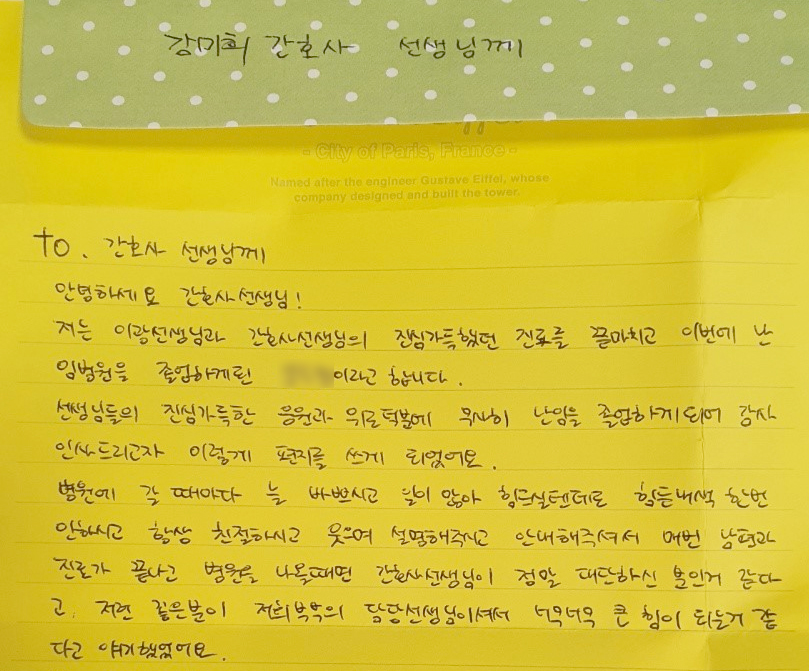 강미희 간호사 선생님께
- City of Paris, France -
Named after the engineer Gustave Eiffel, whose
company designed and built the tower.
to. 간호사 선생님께
안녕하세요 간호사선생님!
저는 이광선생님과 간호사선생님의 진심가득했던 진료를 끝마치고 이번에 난
임병원을 졸업하게된 이라고 합니다.
선생님들의 진심가득한 응원과 위로덕분에 무사히 난임을 졸업하게되어 감사
인사드리고자 이렇게 편지를 쓰게 되었어요.
병원에 갈 때마다 늘 바쁘시고 일이 많아 힘드실텐데도 힘든내색 한번
안하시고 항상 친절하시고 웃으며 설명해주시고 안내해주셔서 매번 남편과
진료가 끝나고 병원을 나올때면 간호사선생님이 정말 대단하신 분인거 같다
고, 저런 좋은분이 저희부부의 담당선생님이셔서 너무너무 큰 힘이 되는거 같
다고 얘기했었어요.